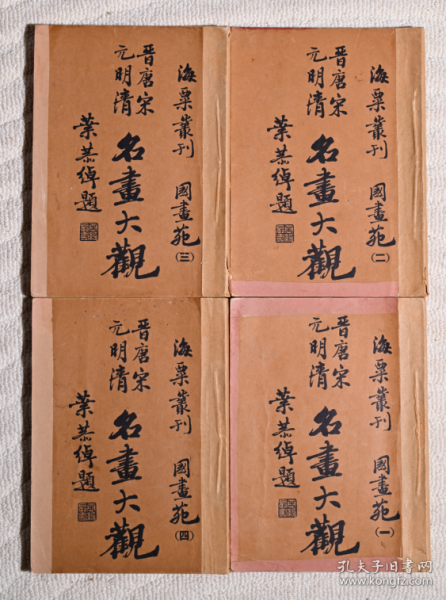 海粟叢刊 國畫苑
(三)
晋唐宋
元明清
名畫大觀
葉恭綽題
海粟叢刊 國畫苑
(二)
晋唐宋
元明清
名畫大觀
葉恭綽題
海粟叢刊 國畫苑
(四)
晋唐宋
元明清
名畫大觀
葉恭綽題
海粟叢刊 國畫苑
(一)
晋唐宋
元明清
名畫大觀
葉恭綽題
孔夫子旧书网
www.kongfz.com